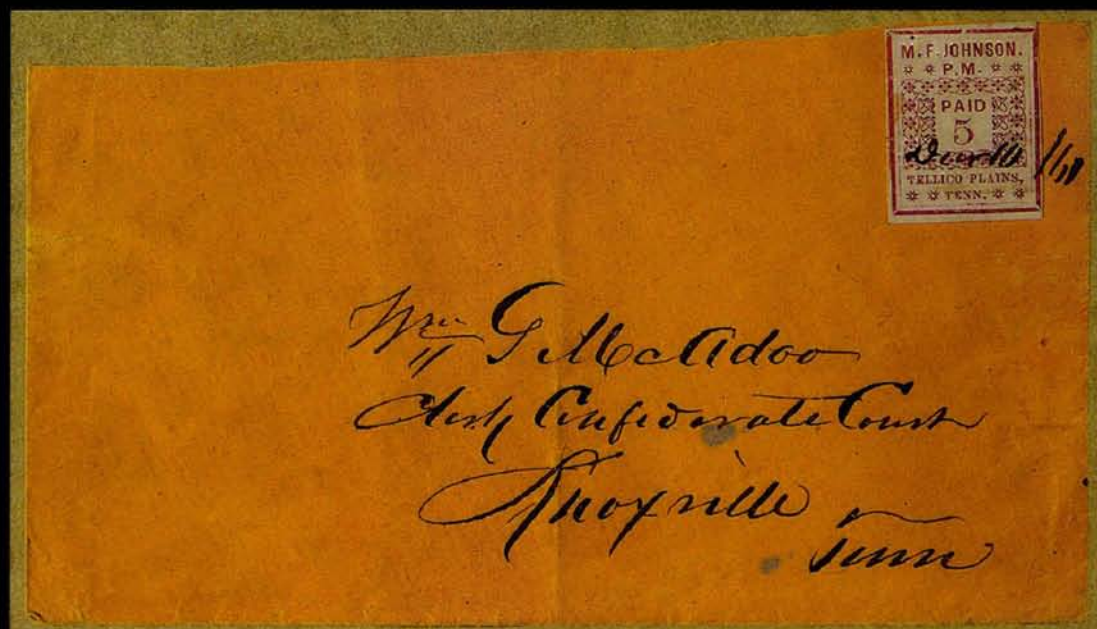 M. F. JOHNSON.
P.M.
PAID
5
TELLICO PLAINS,
TENN.
Wm G McAdoo
Clerk Confederate Court
Knoxville
Tenn